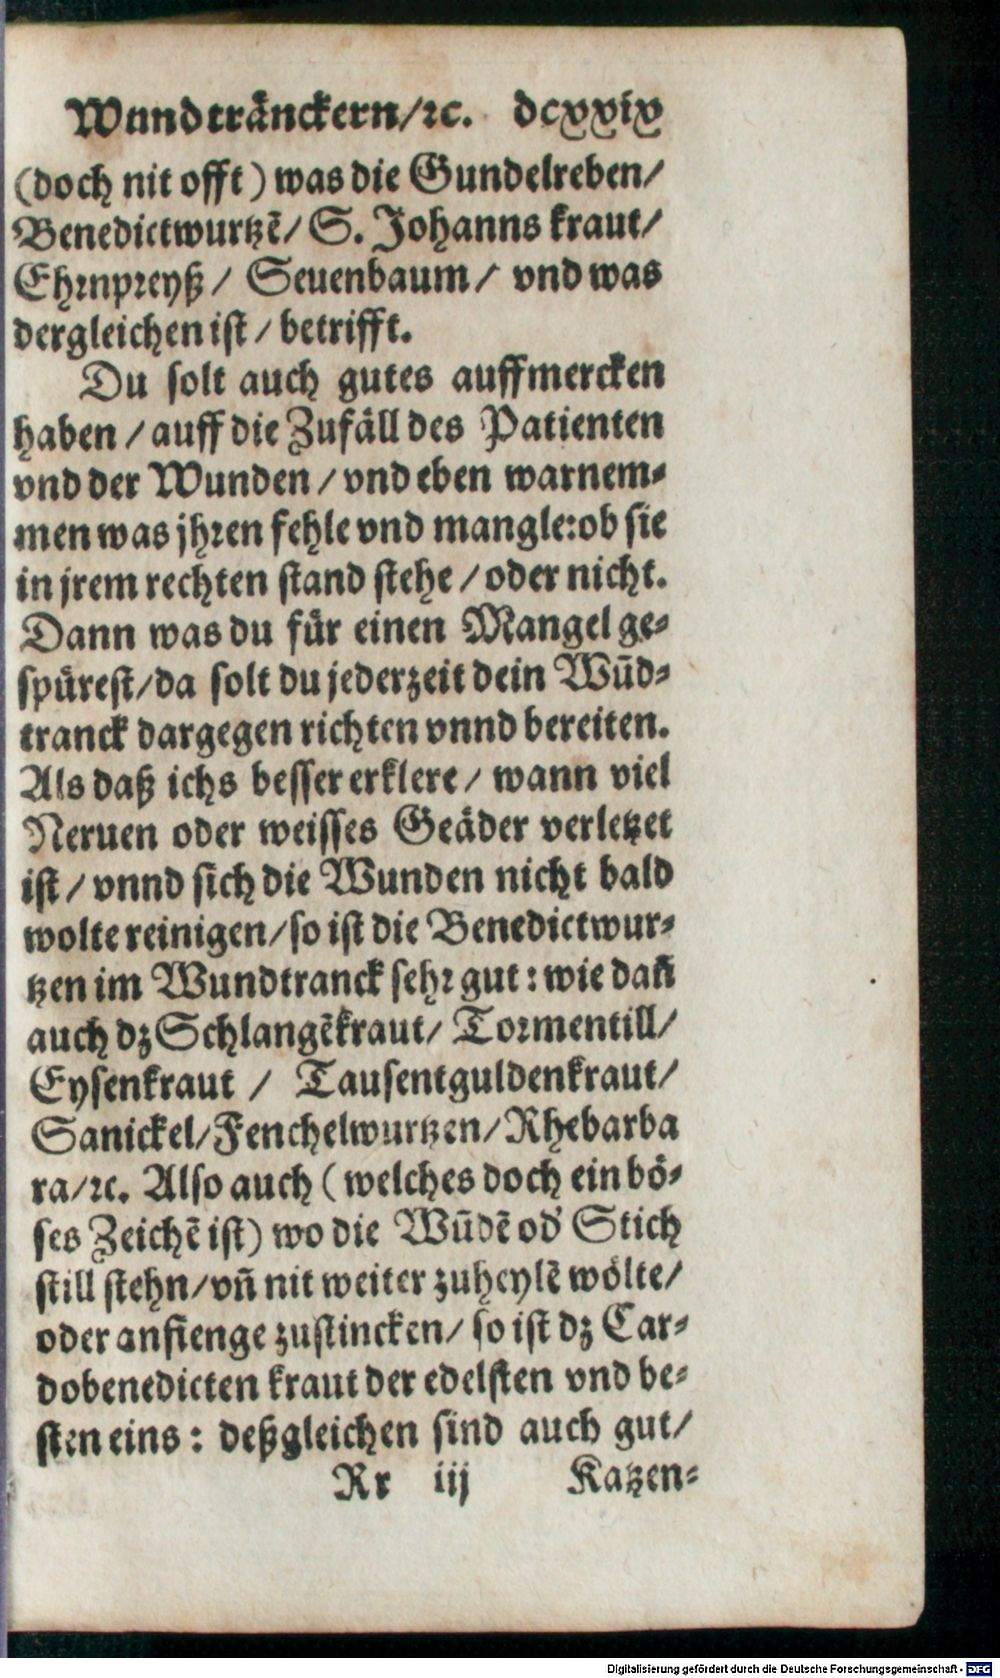 Wundtränckern/ꝛc. dcxxix
(doch nit offt) was die Gundelreben/
Benedictwurtzẽ/ S. Johanns kraut/
Ehrnpreyß / Seuenbaum / vnd was
dergleichen ist / betrifft.
Du solt auch gutes auffmercken
haben / auff die Zufäll des Patienten
vnd der Wunden / vnd eben warnem-
men was jhren fehle vnd mangle: ob sie
in jrem rechten stand stehe / oder nicht.
Dann was du für einen Mangel ge-
spürest/ da solt du jederzeit dein Wũd-
tranck dargegen richten vnnd bereiten.
Als daß ichs besser erklere / wann viel
Neruen oder weisses Geäder verletzet
ist / vnnd sich die Wunden nicht bald
wolte reinigen/ so ist die Benedictwur-
tzen im Wundtranck sehr gut: wie dañ
auch dz Schlangẽkraut/ Tormentill/
Eysenkraut / Tausentguldenkraut/
Sanickel/ Fenchelwurtzen/ Rhebarba
ra/ꝛc. Also auch (welches doch ein bö-
ses Zeichẽ ist) wo die Wũdẽ od' Stich
still stehn/ vñ nit weiter zuheylẽ wölte/
oder anfienge zustincken/ so ist dz Car-
dobenedicten kraut der edelsten vnd be-
sten eins: deßgleichen sind auch gut/
Rr iij Katzen-
Digitalisierung gefördert durch die Deutsche Forschungsgemeinschaft - DFG